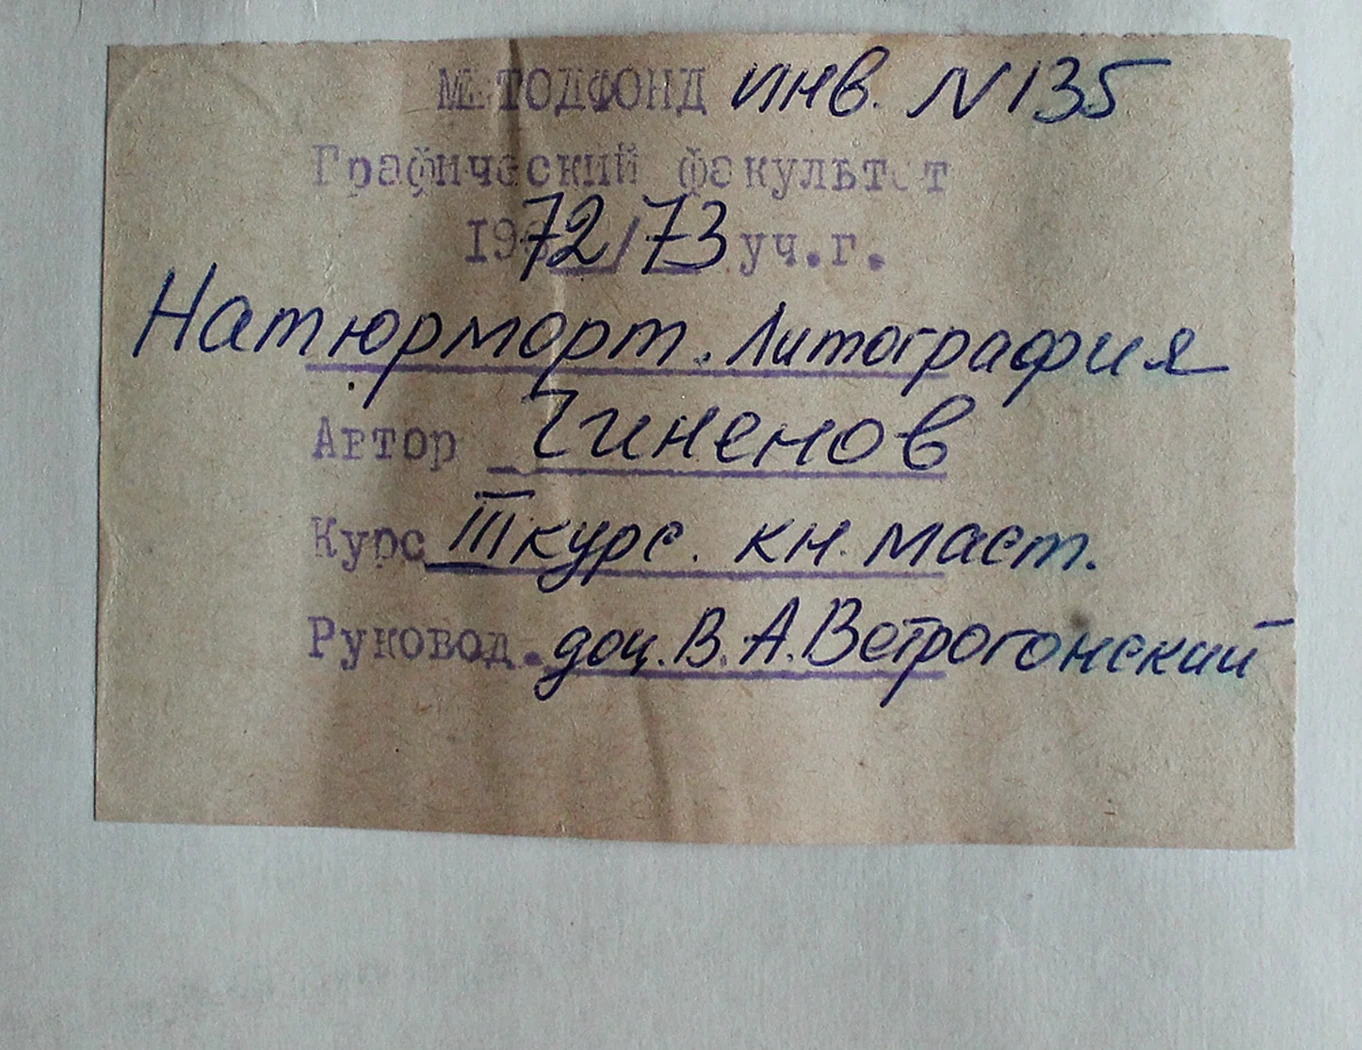 МЕТОДФОНД инв. N 135
Графический факультет
1972/73 уч.г.
Натюрморт. Литография
Автор Чиненов
Курс III курс. кн. маст.
Руковод. доц. В. А. Ветрогонский